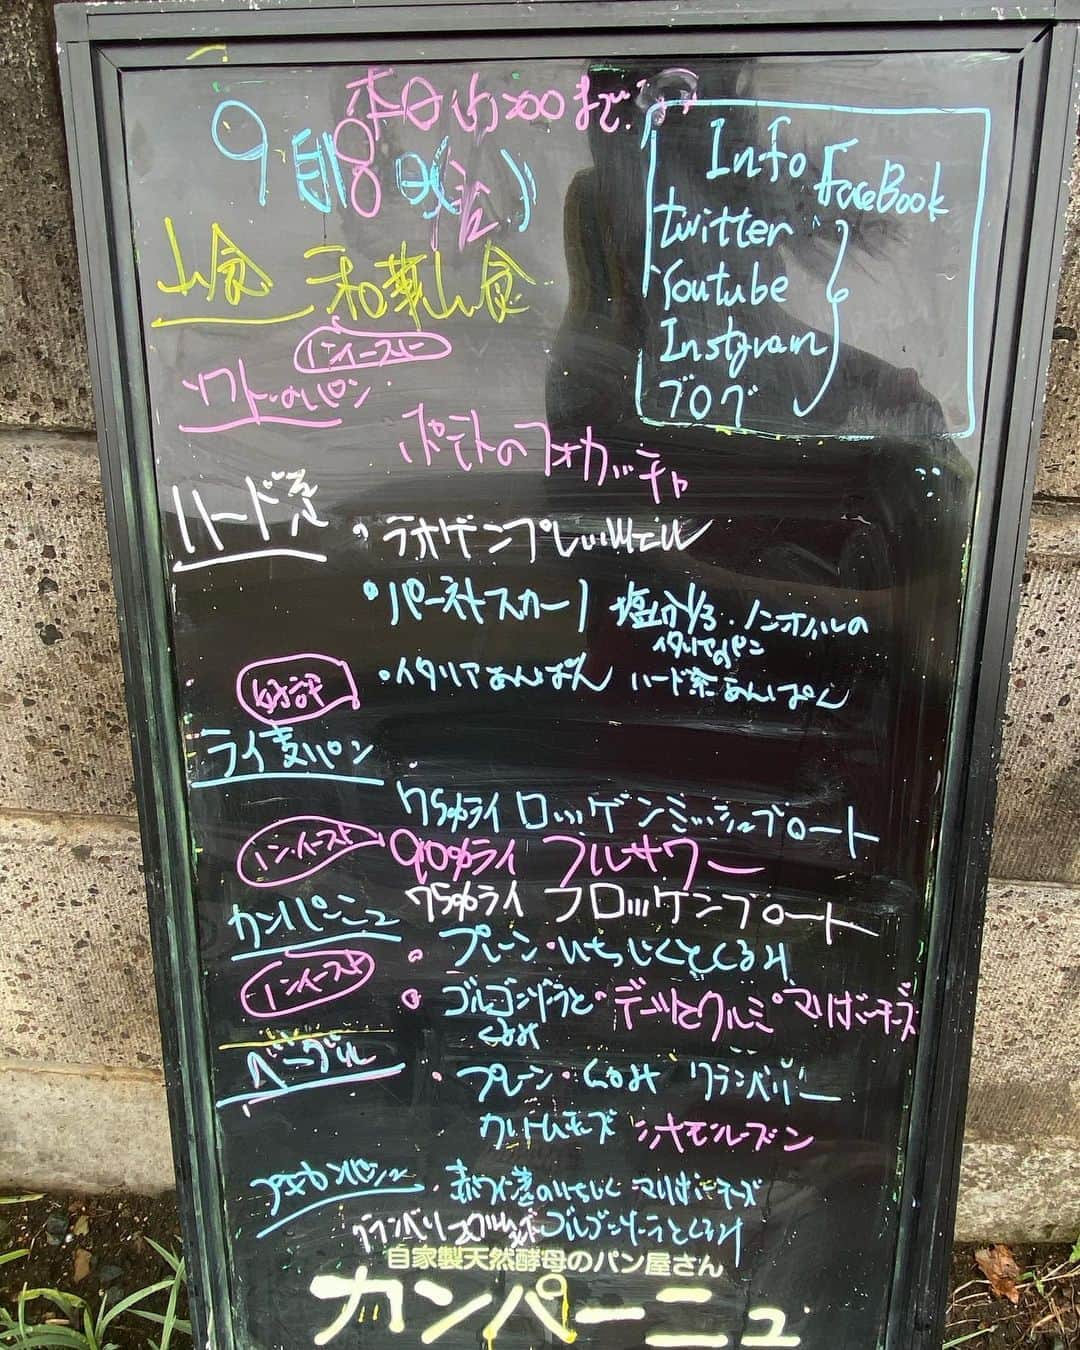 本日 まで
9月18日
Info FaceBook
twitter
Youtube
Instgram
ブログ
山食 和華山食
ノンイースト
ソフトのパン
ポテトのフォカッチャ
ハード系
・ラオゲンプレッツェル
・パーネトスカーノ 塩分1/3・ノンオイルの
イタリアのパン
好評
・イタリアあんぱん ハード系あんぱん
ライ麦パン
75%ライ ロッゲンミッシュブロート
ノンイースト 90%ライ フルサワー
75%ライ フロッケンブロート
カンパーニュ
ノンイースト
・プレーン・いちじくとくるみ
・ゴルゴンゾーラと ・デーツとクルミ マリボーチーズ
くるみ
ベーグル
・プレーン・くるみ クランベリー
カルダモンチーズ シナモンレーズン
プチカンパーニュ ・赤ワイン煮のいちじく マリボーチーズ
クランベリー ゴルゴンゾーラとくるみ
自家製天然酵母のパン屋さん
カンパーニュ